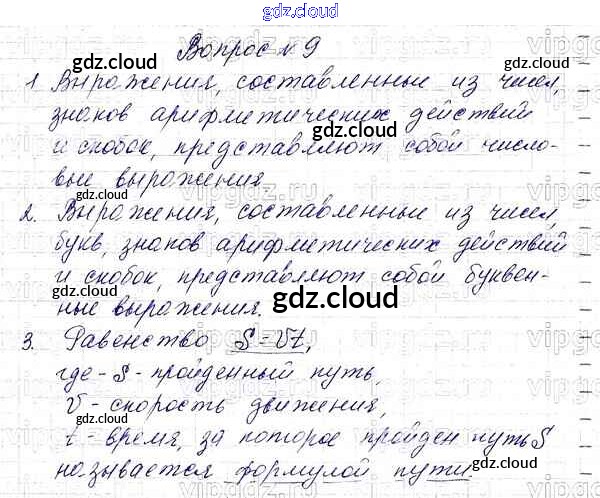 gdz.cloud
Вопрос №9
1 Выражения, составленные из чисел,
знаков арифметических действий
и скобок, представляют собой число-
вые выражения
2. Выражения, составленные из чисел,
букв, знаков арифметических действий
и скобок, представляют собой буквен-
ные выражения.
3. Равенство S-Vt,
где - S - пройденный путь,
V - скорость движения,
t - время, за которое пройден путь S
называется формулой пути.